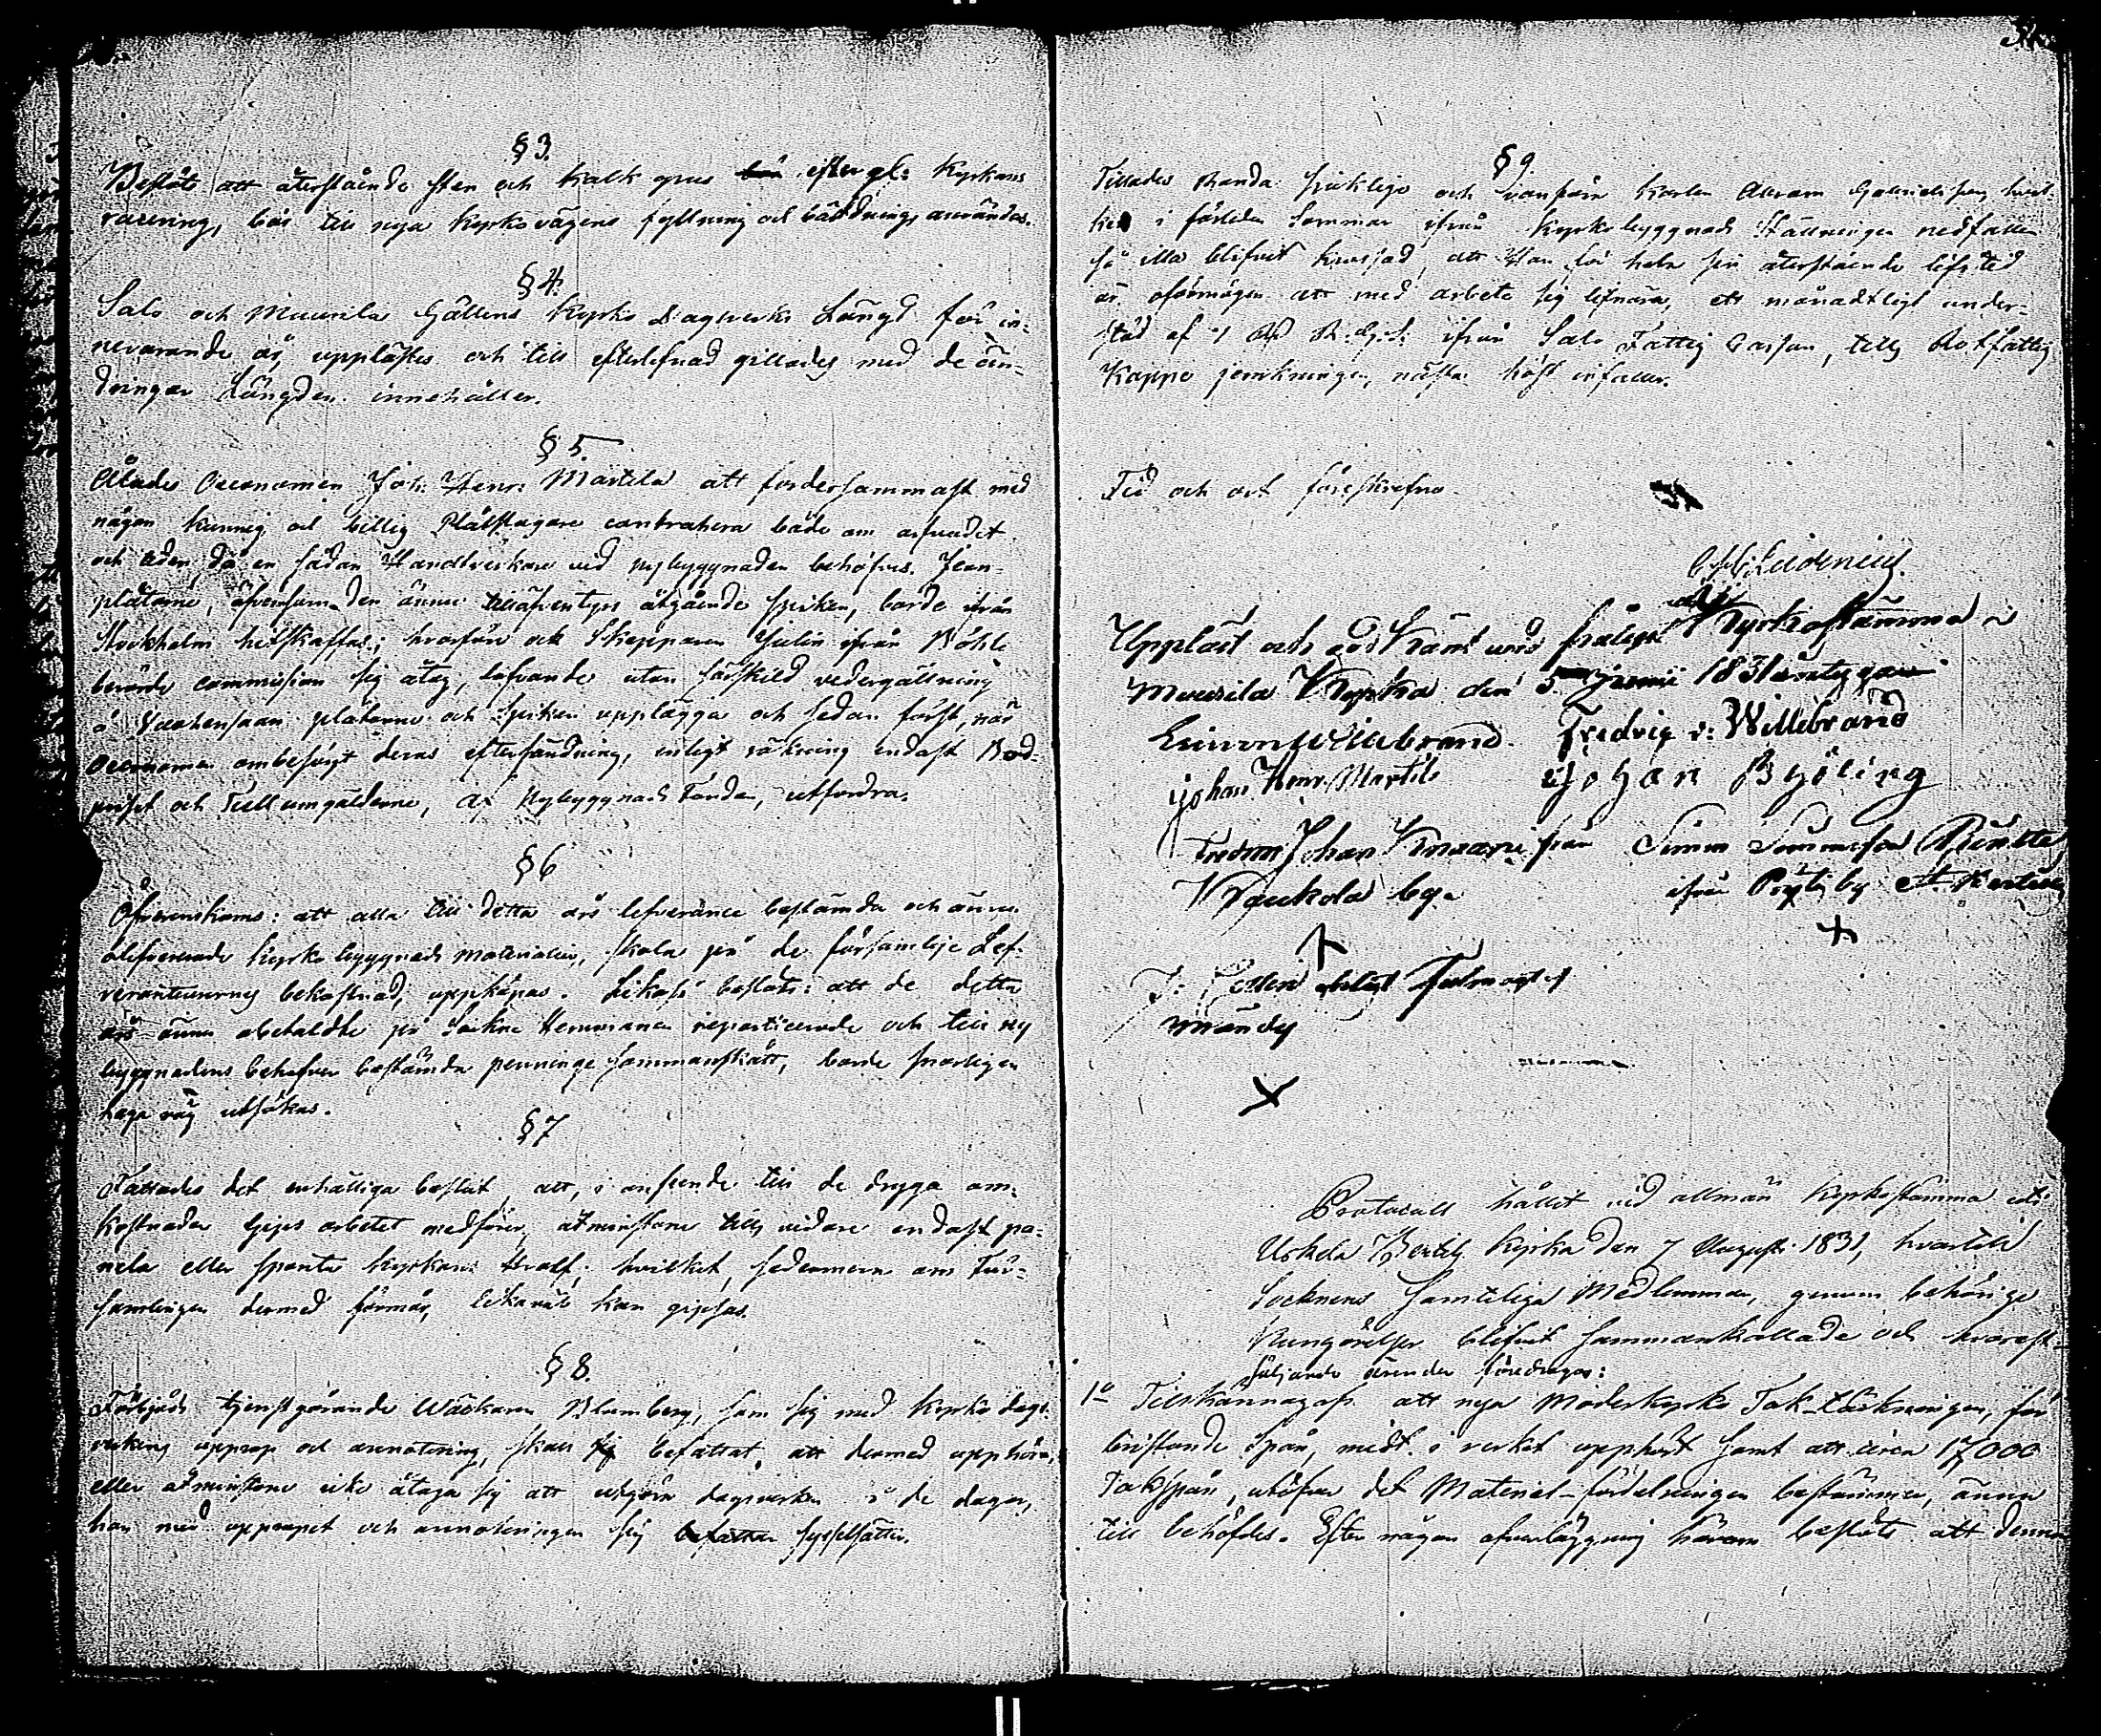 § 3.
Beslöts att återstående sten och kalk grus efter gl: Kyrkans
rasering, bör till nya kyrkovägens fyllning och bäddning användas.
§ 4.
Salo och Muurila Gällens Kyrko Dagsverks Längd för in-
nevarande år, upplästes och till efterlefnad gillades med de än-
dringar Längden innehåller.
§ 5.
Ålades Oeconomen Joh: Henr: Martila att fordersammast med
någon kunnig och billig Plåtslagare contrahera både om arfvodet
och tiden, då en sådan Handtverkare vid nybyggnaden behöfves. Jern-
plåtarne, äfvensom den ännu tilläfventyrs åtgående spiken, borde ifrån
Stockholm hitskaffas; hvarföre ock Skepparen Julin ifrån Böhle
berörde commission sig åtog, lofvande utan särskild vedergällning
å plåtarne och Spiken upplägga och sedan först, när
Oeconomen ombesörjt deras eftersändning, enligt räkning endast Bod-
priset och Tull umgälderne, af Nybyggnads Fonden, utfordra.
§ 6
Öfverenskoms: att alla till detta års leverance bestämda och ännu
olefvererade Kyrko byggnads materialier, skola på de försumlige Lef-
veranteurernes bekostnad, uppköpas. Likaså beslöts: att de detta
års ännu obetaldte på Sockne Hemmanen reparticerade och till ny
byggnadens behofver bestämda penninge sammanskått, borde snarligen
laga väg utsökas.
§ 7
Fattades det enhälliga beslut, att, i anseende till de dryga om-
kostnader Gips arbetet medförer, åtminstone tills vidare endast pa-
nela eller sponta Kyrkans Hvalf; hvilket, sedermera om För-
samlingen dermed förmår, likaväl kan gipsas.
§ 8.
Förbjöds tjenstgörande Wäckaren Blomberg, som sig med kyrko dags-
verkens upprop och annotering, skall befattat, att dermed upphöra,
eller åtminstone icke åtaga sig att utgöra dagsverken i de dagar,
han med uppropet och annoteringen sig sysselsätter.
§ 9.
Tillades sjuklige och vanföre Karlen Abram Gabrielsson, hvil-
ken i förliden Sommar ifrån Kyrkobyggnads Ställningen nedfallen
så illa blifvit krossad, att Han för hela sin återstående lifstid
är oförmögen att med arbete sig lifnära, ett månadtligt under-
stöd af 1 ifrån Salo Fattig Cassan, tills Rotfattig
Kappe jemkningen, nästa höst infaller.
Tid och ort föreskrefne.
Uppläst och godkänt vid hållen Kyrkostämma i
Muurila Kyrka den 5 Junii 1831
Fredric v: Willebrand
Johan Henr. Martila Johan Byöling
Johan från Simon Simonsson
Kaukola by. ifrån by
Protocoll hållit vid allmän Kyrkostämma uti
Uskela Kyrka den 7 Augusti 1831, hvartill
Socknens samtelige Medlemmar, genom behörige
Kungörelser blifvit sammankallade och hvarest
följande ärenden föredrogos:
1o Tillkännagafs att nya Moderkyrko Tak-täckningen, för
bristande Spån, midt i verket upphört samt att circa 17000
Takspån, utöfver det Material-fördelningen bestämmer, ännu
till behöfdes. Efter någon öfverläggning härom beslöts att denna